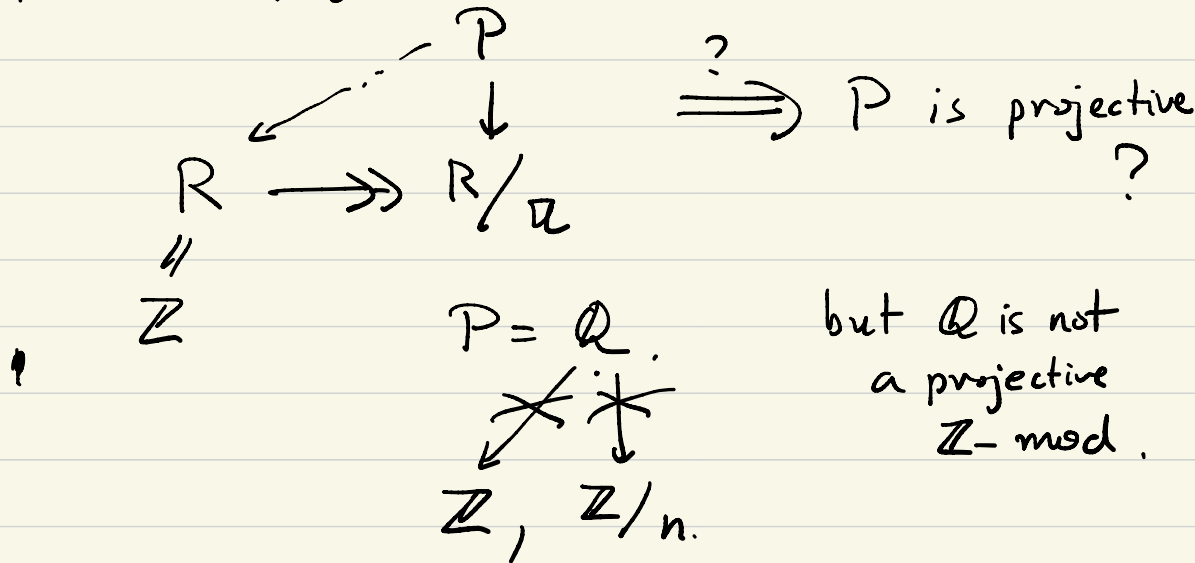 P
? ⟹ P is projective
?
R ↠ R/𝔞
=
ℤ
P = ℚ. but ℚ is not
a projective
ℤ-mod.
ℤ, ℤ/n.